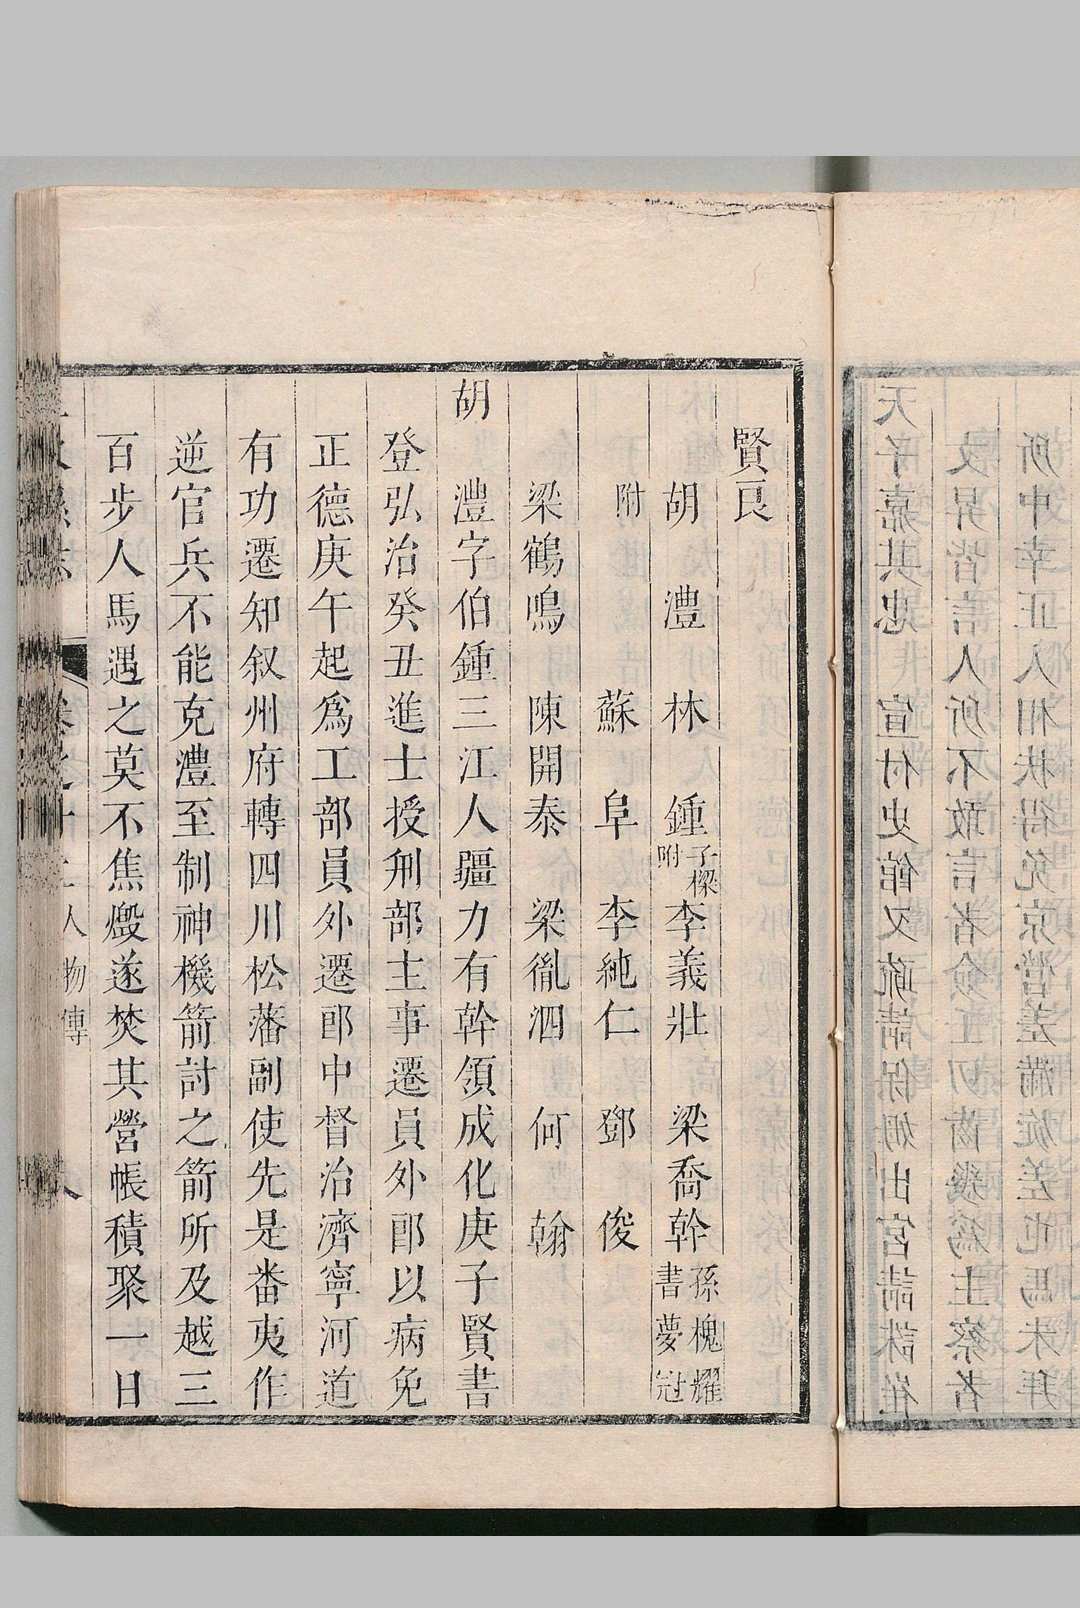 所中幸正人相扶得免京營差滿旋差巡馬未拜
毀昇皆言人所不敢言者僉壬切齒幾爲主察者
天子嘉其忠　宣付史館又疏請保姆出宮請誅崔
賢良
胡　澧　林　鍾子樑附　李義壯　梁喬幹孫槐耀書夢冠
附　蘇　阜　李純仁　鄧　俊
梁鶴鳴　陳開泰　梁胤泗　何　翰
胡　澧字伯鍾三江人疆力有幹領成化庚子賢書
登弘治癸丑進士授刑部主事遷員外郎以病免
正德庚午起爲工部員外遷郎中督治濟寧河道
有功遷知叙州府轉四川松藩副使先是畨夷作
逆官兵不能克澧至制神機箭討之箭所及越三
百步人馬遇之莫不焦燬遂焚其營帳積聚一日
人物傳